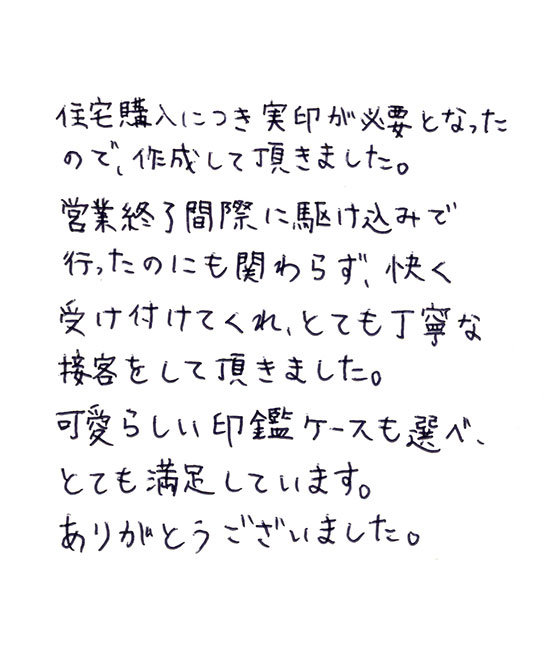 住宅購入につき実印が必要となった
ので、作成して頂きました。
営業終了間際に駆け込みで
行ったのにも関わらず、快く
受け付けてくれ、とても丁寧な
接客をして頂きました。
可愛らしい印鑑ケースも選べ、
とても満足しています。
ありがとうございました。